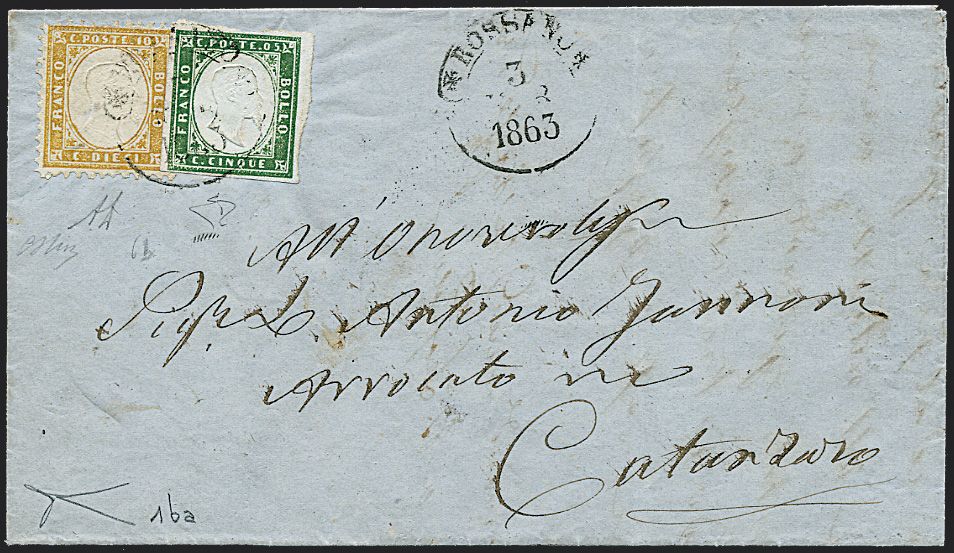 C. POSTE. 10
FRANCO
BOLLO
C. DIECI
C. POSTE. 05
FRANCO
BOLLO
C. CINQUE
ROSSANO
3
1863
All' Onorevoliss
D. Antonio Jannoni
Avvocato in
Catanzaro
16a